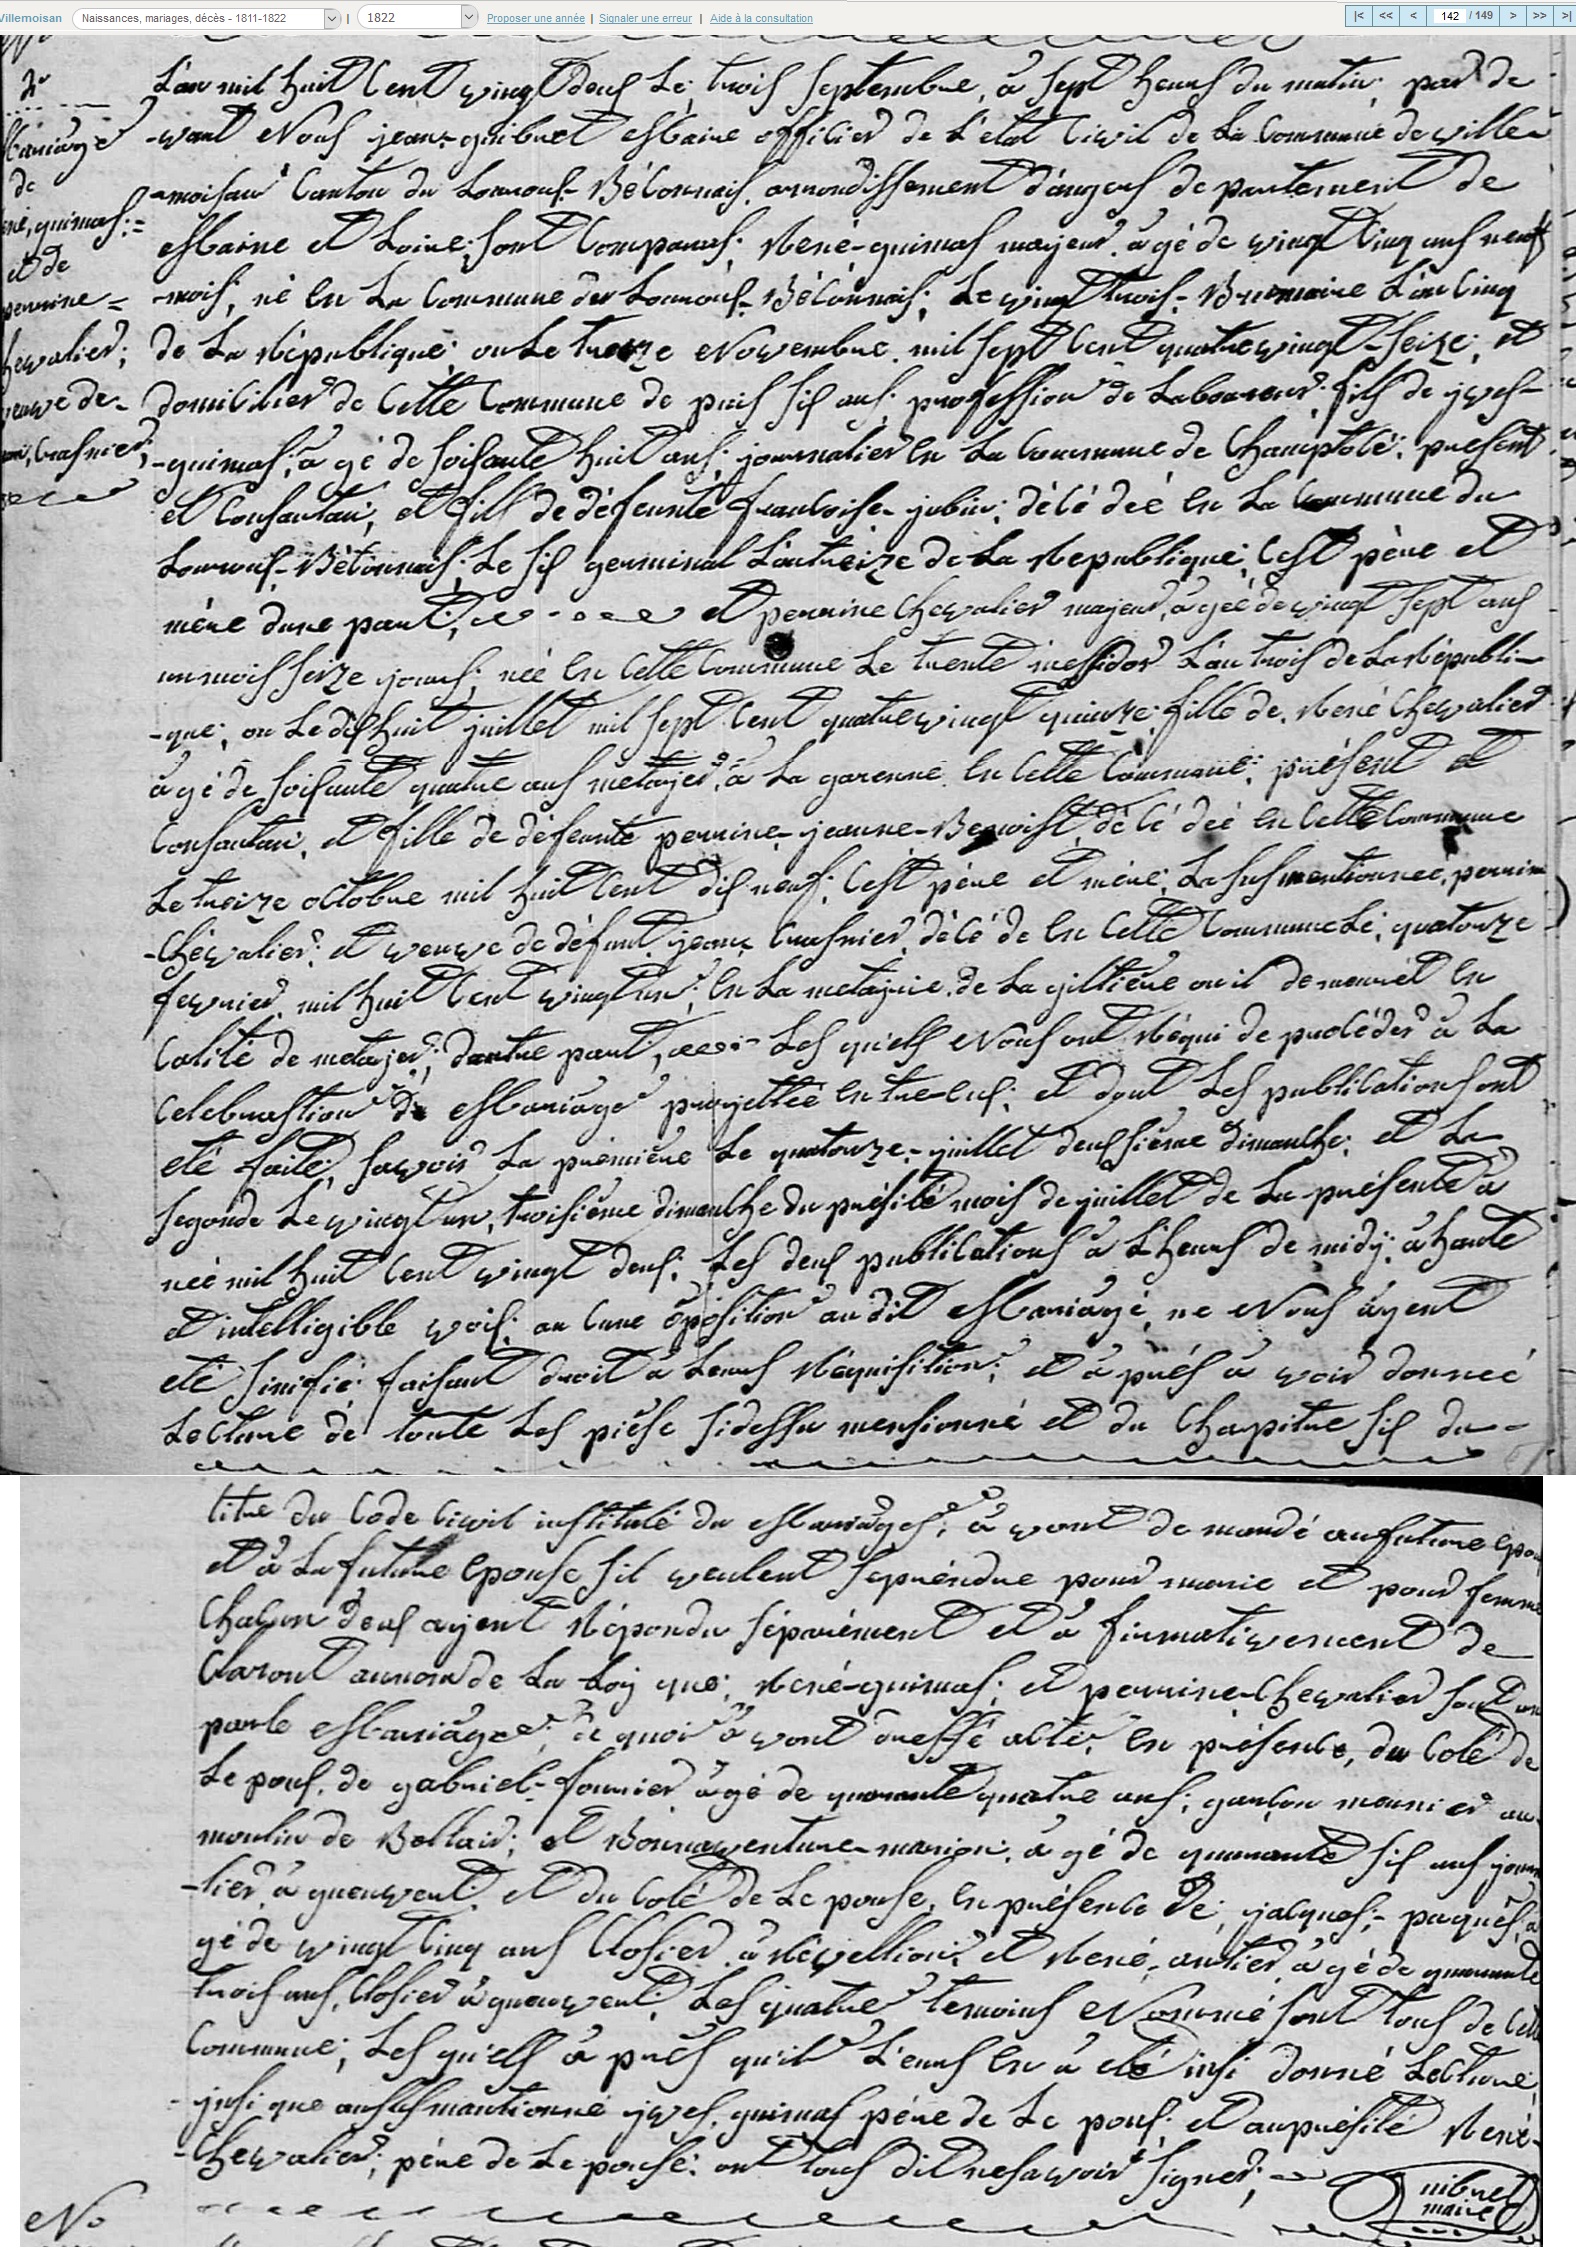 Villemoisan Naissances, mariages, décès - 1811-1822 | 1822 Proposer une année | Signaler une erreur | Aide à la consultation |< << < 142 / 149 > >> >|
mariage
de
rené, guimas;=
et de
perrine=
chevalier;
veuve de-
jean, crasnier;
L'an mil huit Cent vingt deuf Le; trois septembre, à sept heurs du matin; par de
-vant Nous jean-guibret Maire officier de L'etat Civil de La Commune de ville-
-moisan Canton du Lourouf-Béconnais, arrondissement d'angers de partement de
Maine et Loire; sont Comparus; René-guimas majeur, à gé de vingt Cinq ans neuf
-mois; né en La Commune du Lourouf-Béconnais; Le vingt trois-Brumaire L'an Cinq
de La République; ou Le treize Novembre, mil sept Cent quatrevingt-seize; et
domicilier de Cette Commune de puis sif ans; profession de Laboureur; fils de yves-
-guimas; à gé de soisante huit ans; journalier en La Commune de Champtocé; présent
et Consantan; et fils de défeunte francoise-jubin; décé deé en La Commune du
Lourouf-Béconnais; Le sif germinal L'an treize de La Republique; Cest père et
mère dune part; et perrine Chevalier majeur, à geé de vingt sept ans
un mois seize jours; neé en Cette Commune Le trente messidor L'an trois de La Républi-
-que; ou Le dishuit juillet mil sept Cent quatrevingt quinze; fille de, René Chevalier
à gé de soisante quatre ans metayer, à La garenne en Cette Commune; présent et
Consantan; et fille de défeunte perrine-jeanne-Benoist, dé Cé deé en Cette Commune
Le treize octobre mil huit Cent dis neuf; Cest père et mère; La susmentionneé, perrine
-Chévalier; et veuve de défunt, jean, Crasnier, décé de en Cette Commune Le; quatorze
fevrier, mil huit Cent vingt un; en La metairie de La giltière ou il demeuret en
Calité de metayer; dautre part; Les quels Nous ont Réqui de procéder à La
Celebrastion de Mariage projetteé entre-eus; et dont Les publications ont
eté faite; savoir La première Le quatorze-juillet deussième dimanche; et La
segonde Le vingt un, troisième dimanche du présité mois de juillet de La présente à
neé mil huit Cent vingt deuf; Les deuf publications à L'heure de midy; à haute
et intelligible vois; au Cune oposition audit Mariage, ne Nous ayent
eté sinifié; faisant droit à Leurs Réquisition; et à prés à voir donneé
Lecture de toute Les pièse sidessu mensionné et du Chapitre sif du-
titre du Code Civil institulé du Mariages; à vont de mandé au future epou
et à La future epouse sil veulent seprendre pour marie et pour femme
Chacun deus ayent Répondu séparément et à firmativement de
Claront aunom de La Loy que; René-guimas; et perrine-Chevalier sont uni
parle Mariage; de quoi à vont dressé acte; en présence, du Coté de
Le pous, de gabriel-fournier à gé de quarante quatre ans; garçon meunier au
moulin de Bellair; et Bonnaventure-marion, à gé de quarante sif ans journ
-lier, à et du Coté de Le pouse, en présence de; jacques;-paqués, à
gé de vingt Cinq ans Closier, à Révellion; et René, autier, à gé de quarante
trois ans, Closier à Les quatre temoins Nommé sont tous de Cette
Commune; Les qu'els à prés qu'il L'eurs en à eté insi donné Lecture,
-jnsi que aususmantionné yves, guimas père de Le pous; et auprésité René-
-Chevalier; père de Le pouse; ont tous dit nesavoir signer;
guibret
maire
No